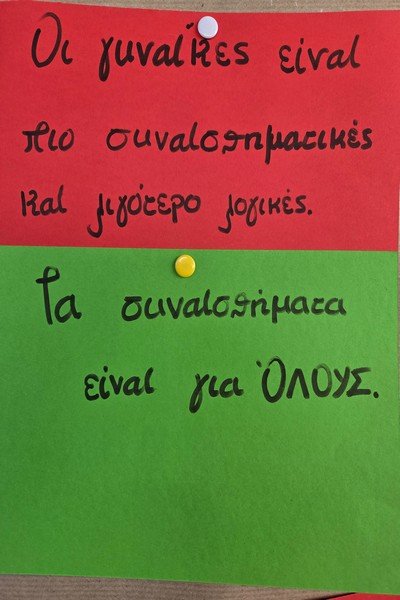 Οι γυναίκες είναι
πιο συναισθηματικές
και λιγότερο λογικές.
Τα συναισθήματα
είναι για ΌΛΟΥΣ.